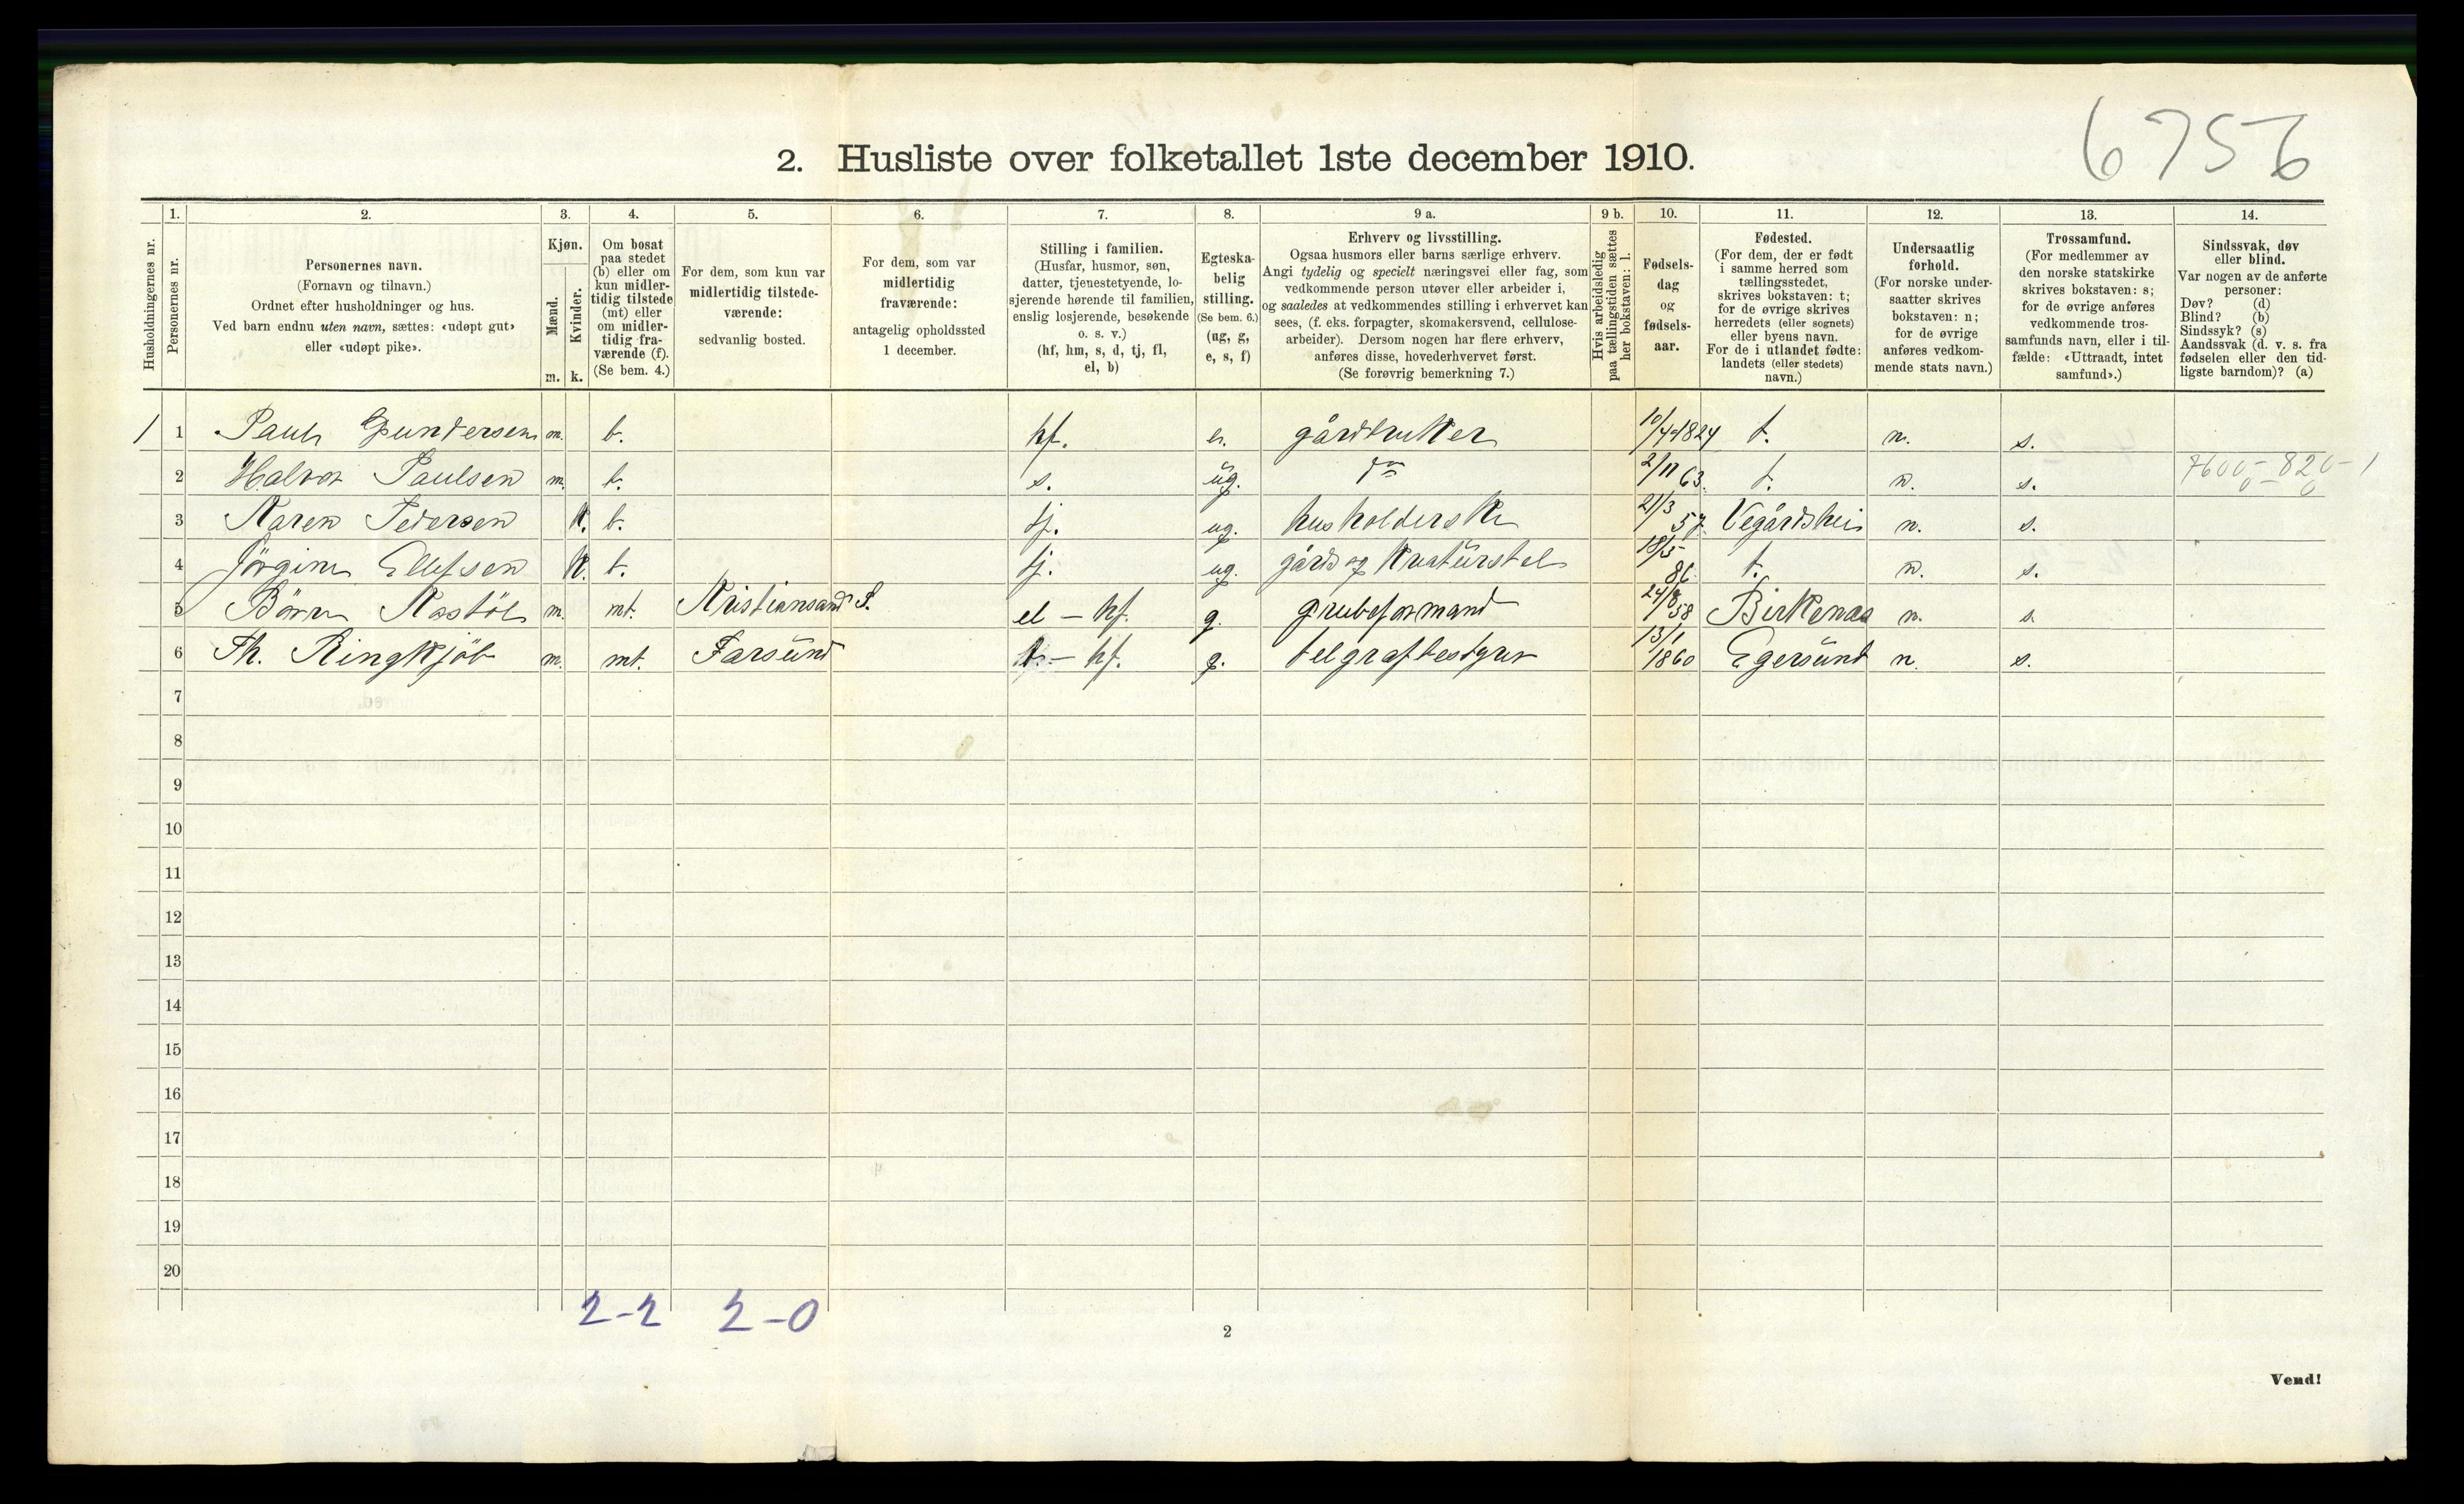 6756
2. Husliste over folketallet 1ste december 1910.
Husholdningernes nr.
1.
Personernes nr.
2.
Personernes navn.
(Fornavn og tilnavn.)
Ordnet efter husholdninger og hus.
Ved barn endnu uten navn, sættes: «udøpt gut»
eller «udøpt pike».
3.
Kjøn.
Mænd.
Kvinder.
m. k.
4.
Om bosat
paa stedet
(b) eller om
kun midler-
tidig tilstede
(mt) eller
om midler-
tidig fra-
værende (f).
(Se bem. 4.)
5.
For dem, som kun var
midlertidig tilstede-
værende:
sedvanlig bosted.
6.
For dem, som var
midlertidig
fraværende:
antagelig opholdssted
1 december.
7.
Stilling i familien.
(Husfar, husmor, søn,
datter, tjenestetyende, lo-
sjerende hørende til familien,
enslig losjerende, besøkende
o. s. v.)
(hf, hm, s, d, tj, fl,
el, b)
8.
Egteska-
belig
stilling.
(Se bem. 6.)
(ug, g,
e, s, f)
9 a.
Erhverv og livsstilling.
Ogsaa husmors eller barns særlige erhverv.
Angi tydelig og specielt næringsvei eller fag, som
vedkommende person utøver eller arbeider i,
og saaledes at vedkommendes stilling i erhvervet kan
sees, (f. eks. forpagter, skomakersvend, cellulose-
arbeider). Dersom nogen har flere erhverv,
anføres disse, hovederhvervet først.
(Se forøvrig bemerkning 7.)
9 b.
Hvis arbeidsledig
paa tællingstiden sættes
her bokstaven: l.
10.
Fødsels-
dag
og
fødsels-
aar.
11.
Fødested.
(For dem, der er født
i samme herred som
tællingsstedet,
skrives bokstaven: t;
for de øvrige skrives
herredets (eller sognets)
eller byens navn.
For de i utlandet fødte:
landets (eller stedets)
navn.)
12.
Undersaatlig
forhold.
(For norske under-
saatter skrives
bokstaven: n;
for de øvrige
anføres vedkom-
mende stats navn.)
13.
Trossamfund.
(For medlemmer av
den norske statskirke
skrives bokstaven: s;
for de øvrige anføres
vedkommende tros-
samfunds navn, eller i til-
fælde: «Uttraadt, intet
samfund».)
14.
Sindssvak, døv
eller blind.
Var nogen av de anførte
personer:
Døv? (d)
Blind? (b)
Sindssyk? (s)
Aandssvak (d. v. s. fra
fødselen eller den tid-
ligste barndom)? (a)
1 1 Paul Gundersen m. b. hf. e. gårdbruker 10/4-1824 t. n. s.
2 Halvor Paulsen m. b. s. ug. do 2/11 63. t. n. s. 7600 - 820 - 1
3 Karen Pedersen k. b. tj. ug. husholderske 21/3 57. Vegårdshei n. s.
4 Jörgine Ellefsen k. b. tj. ug. gårds og kreaturstel 18/5 86. t. n. s.
5 m. mt. Kristiansand S. el - hf. g. grubeformand 24/8 58 Birkenæs n. s.
6 Th. Ringkjöb m. mt. Farsund hf. g. telgrafbestyrer 13/1 1860 Egersund n. s.
7
8
9
10
11
12
13
14
15
16
17
18
19
20
2-2 2-0
2
Vend!